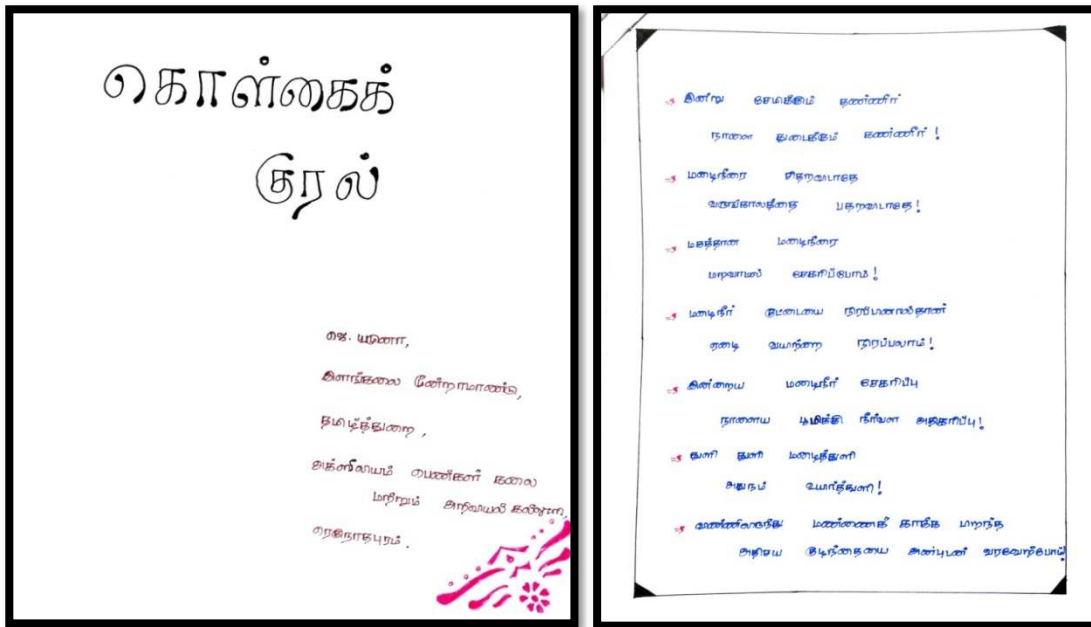 கொள்கைக்
குரல்
ஜெ. யமுனா,
இளங்கலை மூன்றாமாண்டு,
தமிழ்த்துறை,
அக்ஸீலியம் பெண்கள் கலை
மற்றும் அறிவியல் கல்லூரி,
ரெகுநாதபுரம்.
⇒ இன்று சேமிக்கும் தண்ணீர்
நாளை துடைக்கும் கண்ணீர்!
⇒ மழைநீரை சிதறவிடாதே
வருங்காலத்தை பதறவிடாதே!
⇒ மகத்தான மழைநீரை
மறவாமல் சேகரிப்போம்!
⇒ மழைநீர் குட்டையை நிரப்பினால்தான்
ஏழை வயிற்றை நிரப்பலாம்!
⇒ இன்றைய மழைநீர் சேகரிப்பு
நாளைய பூமிக்கு நீர்வள அதிகரிப்பு!
⇒ துளி துளி மழைத்துளி
அதுநம் உயிர்த்துளி!
⇒ விண்ணிலிருந்து மண்ணைக் காக்க பிறந்த
அதிசய குழந்தையை அன்புடன் வரவேற்போம்!